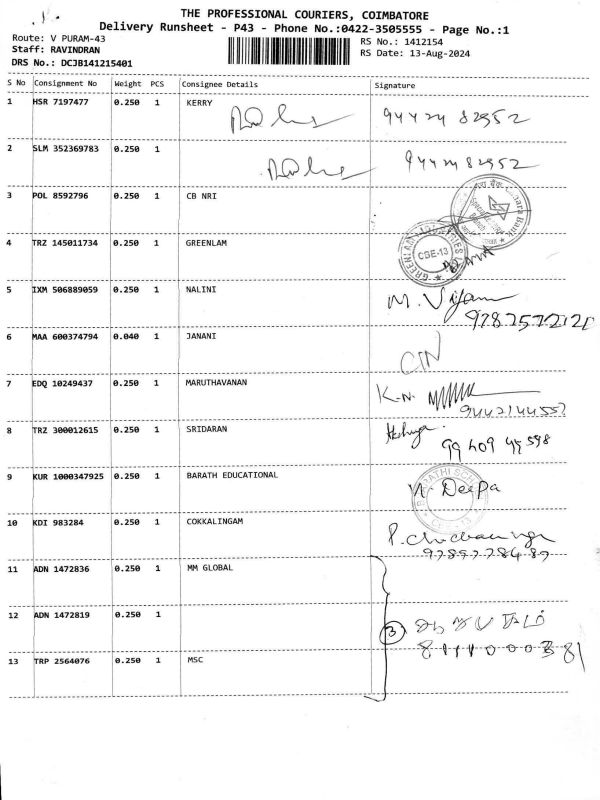 THE PROFESSIONAL COURIERS, COIMBATORE
Delivery Runsheet - P43 - Phone No.:0422-3505555 - Page No.:1
Route: V PURAM-43 RS No.: 1412154
Staff: RAVINDRAN RS Date: 13-Aug-2024
DRS No.: DCJB141215401
S No Consignment No Weight PCS Consignee Details Signature
1 HSR 7197477 0.250 1 KERRY
2 SLM 352369783 0.250 1
3 POL 8592796 0.250 1 CB NRI
4 TRZ 145011734 0.250 1 GREENLAM CBE-13
5 IXM 506889059 0.250 1 NALINI
6 MAA 600374794 0.040 1 JANANI
7 EDQ 10249437 0.250 1 MARUTHAVANAN K.N.
8 TRZ 300012615 0.250 1 SRIDARAN
9 KUR 1000347925 0.250 1 BARATH EDUCATIONAL Deepa
10 KDI 983284 0.250 1 COKKALINGAM
11 ADN 1472836 0.250 1 MM GLOBAL
12 ADN 1472819 0.250 1 3
13 TRP 2564076 0.250 1 MSC